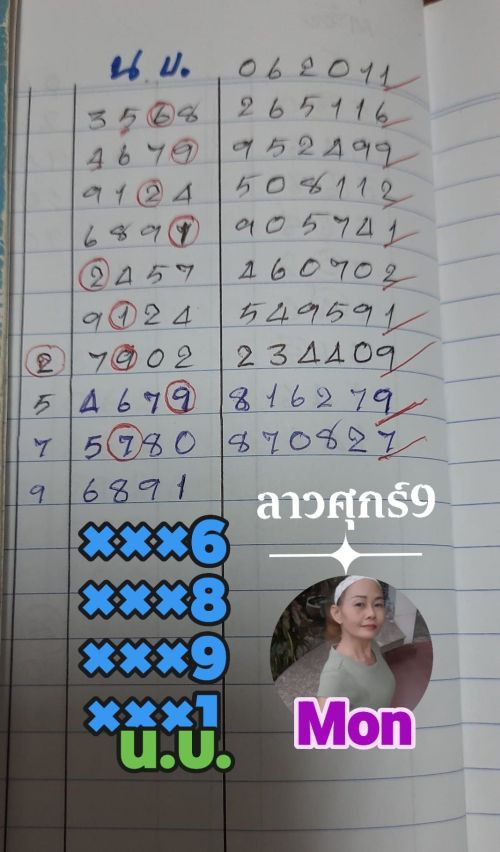 น.บ. 062011
3568 265116
4679 952499
9124 508112
6891 905741
2457 460702
9124 549591
2 7902 234409
5 4679 816279
7 5780 870827
9 6891
ลาวศุกร์9
×××6
×××8
×××9
×××1
น.บ.
Mon